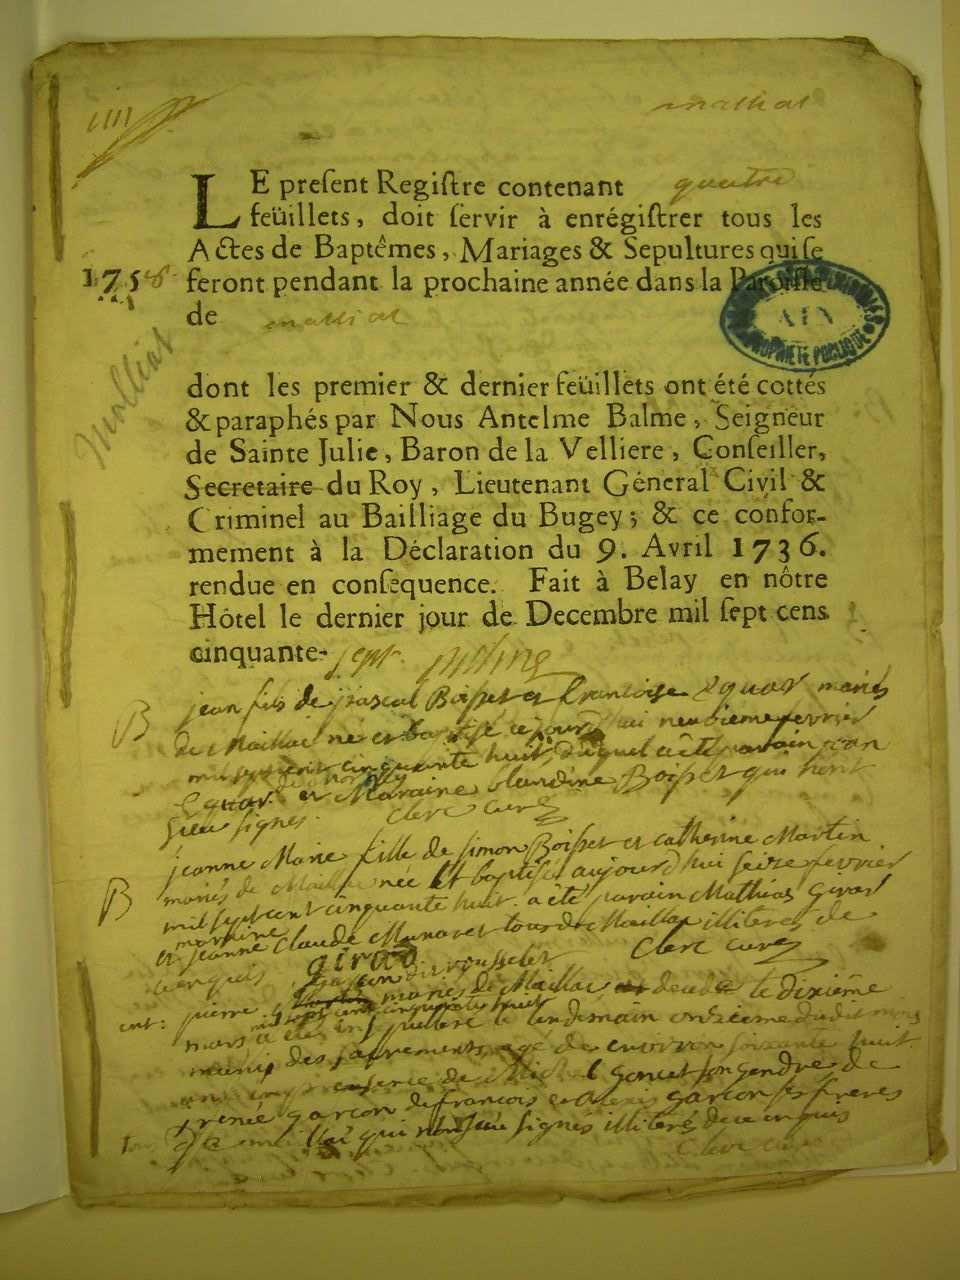 IIII
malliat
LE preſent Regiſtre contenant quatre
feüillets, doit ſervir à enrégiſtrer tous les
Actes de Baptêmes, Mariages & Sepultures qui ſe
1758 feront pendant la prochaine année dans la Paroiſſe
de malliat
AIN
PROPRIETE PUBLIQUE
Molliat
dont les premier & dernier feüillets ont été cottés
& paraphés par Nous Antelme Balme, Seigneur
de Sainte Julie, Baron de la Velliere, Conſeiller,
Secretaire du Roy, Lieutenant Géneral Civil &
Criminel au Bailliage du Bugey; & ce confor-
mement à la Déclaration du 9. Avril 1736.
rendue en conſequence. Fait à Belay en nôtre
Hôtel le dernier jour de Decembre mil ſept cens
cinquante-sept.
B jean fils de pascal Boisset et francoise Equar mariés
de Maillac né et baptisé ce jourd'hui neuvieme fevrier
mil sept cent cinquante huit, duquel a été parrain jean
Equar et Maraine blandine Boisset qui n'ont
sceu signer. Clerc curé
B jeanne Marie fille de simon Boisset et catherine Martin
mariés de Maillac née et baptisée aujourd'hui seize fevrier
mil sept cent cinquante huit. a été parain Mathias girard
marraine
et jeanne Claude Munaret tous de Maillac illiteres de
ce enquis Clerc curé
girad
ent: pierre mariés de Maillac decedé le dixième
mil sept cent cinquante huit
mars a été en sepulture le lendemain onzieme dudit mois
munis des sacrements, age de environ soixante huit
presence de Michel goncet son gendre de
garçon de francois et garcon ses freres
qui n'ont sceu signes illiterés de ce enquis
Clerc curé